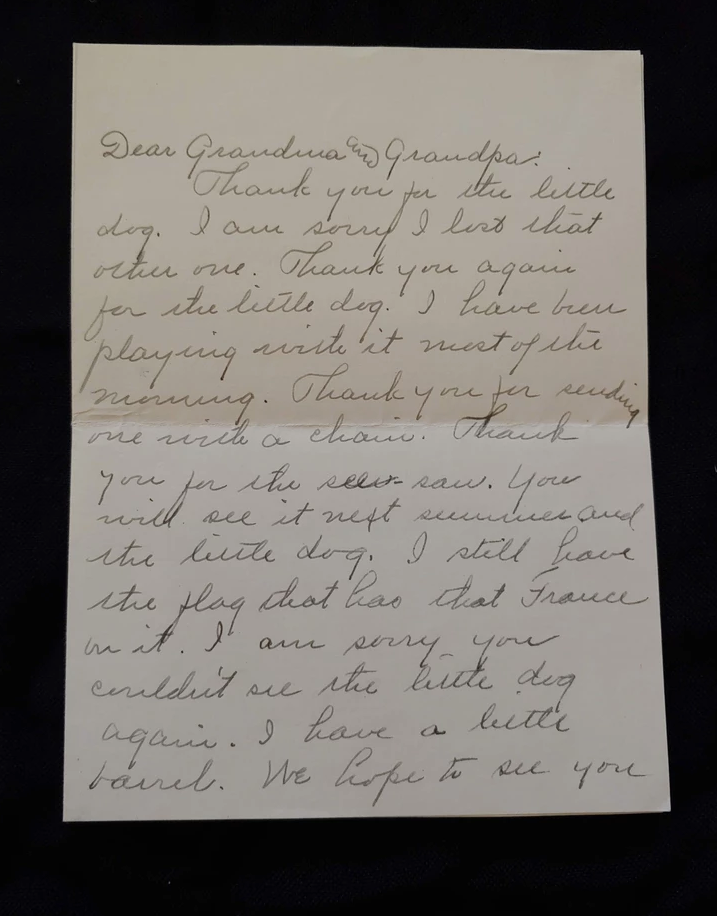 Dear Grandma and Grandpa:
Thank you for the little
dog. I am sorry I lost that
other one. Thank you again
for the little dog. I have been
playing with it most of the
morning. Thank you for sending
one with a chain. Thank
you for the see-saw. You
will see it next summer and
the little dog. I still have
the flag that has that France
on it. I am sorry you
couldn't see the little dog
again. I have a little
barrel. We hope to see you